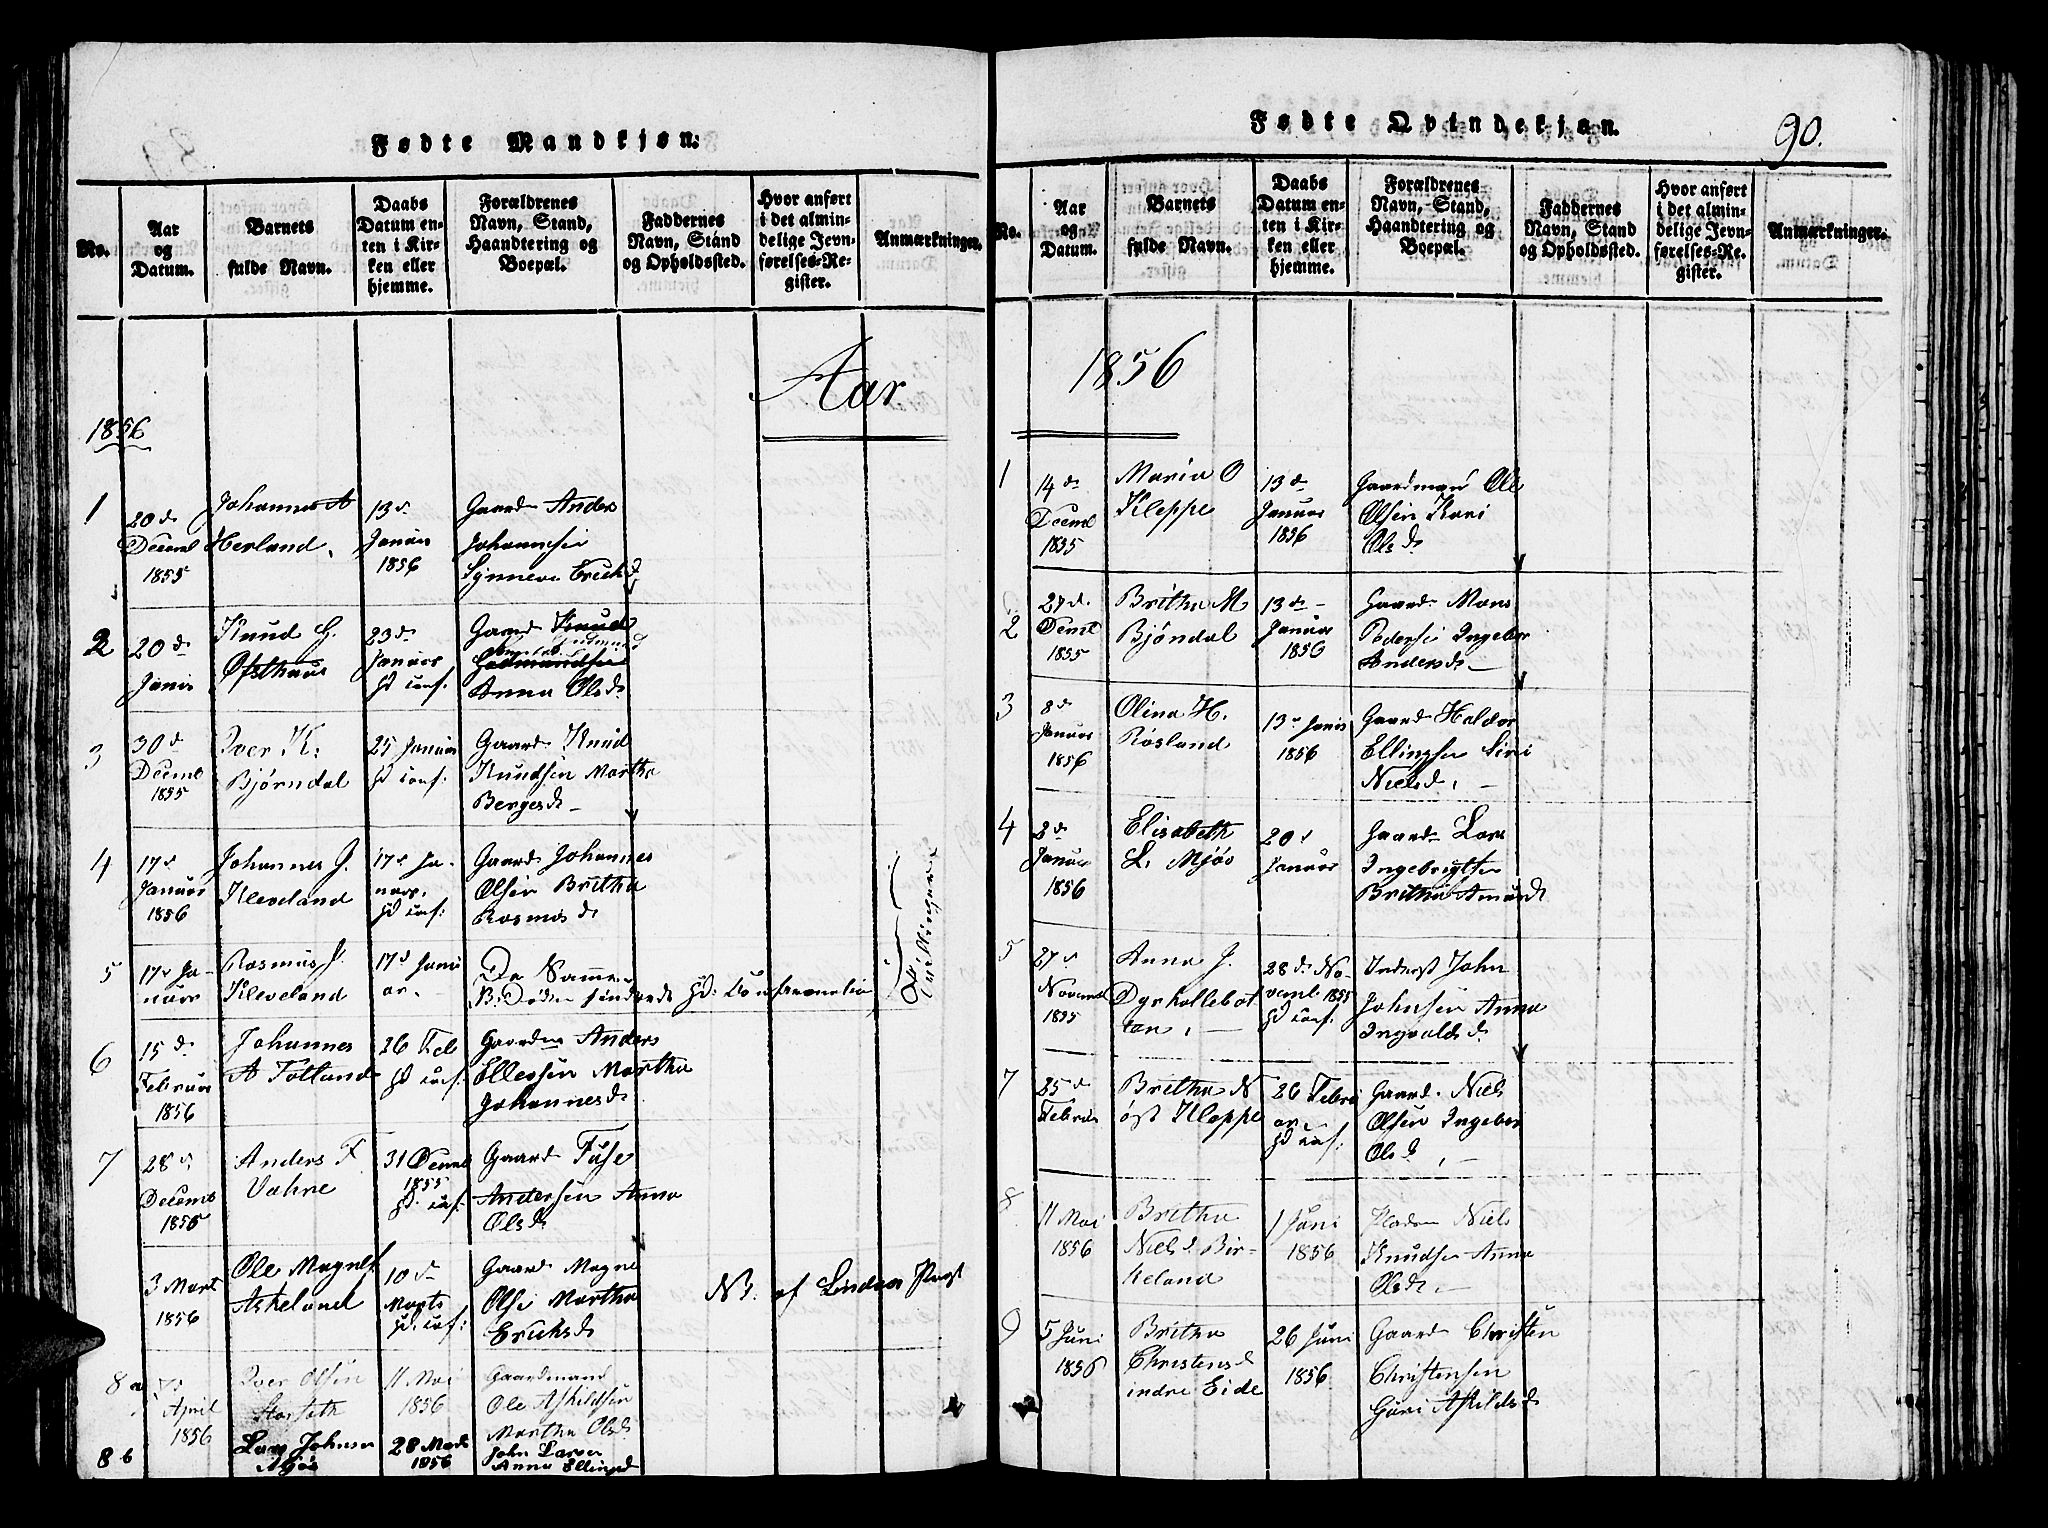 Fødte Mandkjøn.
No.
Aar
og
Datum.
Barnets
fulde Navn.
Daabs
Datum en-
ten i Kir-
ken eller
hjemme.
Forældrenes
Navn, Stand,
Haandtering og
Boepæl.
Faddernes
Navn, Stand
og Opholdssted.
Hvor anført
i det almin-
delige Jevn-
førelses-Re-
gister.
Anmærkninger.
Aar
1856
1
20 d
Deceml
1855
Johannes A
Herland.
13 d
Januar
1856
Gaard Anders
Johannesen
Synneva Erichsd
2
20 d
Janr
Knud G.
Ofsthuus
23 d
Januar
hd conf.
Gaard
Anna Olsd
3
30 d
Deceml
1855
Iver K.
Bjørndal
25 Januar
hd conf:
Gaard Knud
Knudsen Martha
Bergesd
4
17 d
Januar
1856
Johannes J.
Kleveland
17 d Ja-
nuar.
hd conf:
Gaard Johannes
Olsen Britha
Rasmusd
5
17 d Ja-
nuar
Rasmus J.
Kleveland
17 d Janu
ar.
De Samme
hd: Confirmation
Tvillinger
6
15 d
Februar
1856
Johannes
A Totland
26 Feb
hd conf:
Gaardm Anders
Ellessen Martha
Johannesd
7
28 d
Deceml
1856
Anders F
Vahre
31 Deceml
1855
hd. conf:
Gaard Fuse
Andersen Anna
Olsd
3 Mart
1856
Ole Magnes
Askeland
10 d
Marts
hd. conf:
Gaard Magne
Olse Martha
Ericksd
NB. af Lindaas Præst
8 a
April
1856
Iver Olsen
Storseth
11 Mai
1856
Gaardmand
Ole Askildsen
Martha Olsd
8 b
Lars Johnsen
Mjøs
28 Marts
1856
John Larsen
Anna Ellingsd
Fødte Qvindekjøn.
90.
No.
Aar
og
Datum.
Barnets
fulde Navn.
Daabs
Datum en-
ten i Kir-
ken eller
hjemme.
Forældrenes
Navn, Stand,
Haandtering og
Boepæl.
Faddernes
Navn, Stand
og Opholdssted.
Hvor anført
i det almin-
delige Jevn-
førelses-Re-
gister.
Anmærkninger.
1856
1
14 d
Deceml
1855
Maria O
Kleppe
13 d
Januar
1856
Gaardmand Ole
Olsen Kari
Olsd
2
27 d.
Deceml
1855
Britha M
Bjöndal
13 d
Januar
1856
Gaard Mons
Pedersen Ingebor
Andersd
3
8 d
Januar
1856
Olina H.
Røsland
13 d Janr
1856
Gaard Haldor
Ellingsen Siri
Nielsd
4
2 d
Januar
1856
Elisabeth
L. Mjøs
20 d
Januar
Gaard Lars
Ingebrigtsen
Britha Amundsd
5
27 d
Noveml
1855
Anna J.
Dyrkollebot
ten
28 d No-
veml 1855
hd conf.
Inderst John
Johnsen Anna
Ingvaldsd
7
25 d
Febru
Britha N
øst Kleppe
26 Febru
ar
hd conf:
Gaard Niels
Olsen Ingebor
Olsd
8
11 Mai
1856
Britha
Nielsd Bir-
keland
1 Juni
1856
Pladsm Niels
Knudsen Anna
Olsd
9
5 Juni
1856
Britha
Christensd
indre Eide
26 Juni
1856
Gaard Christen
Christensen
Guri Askildsd